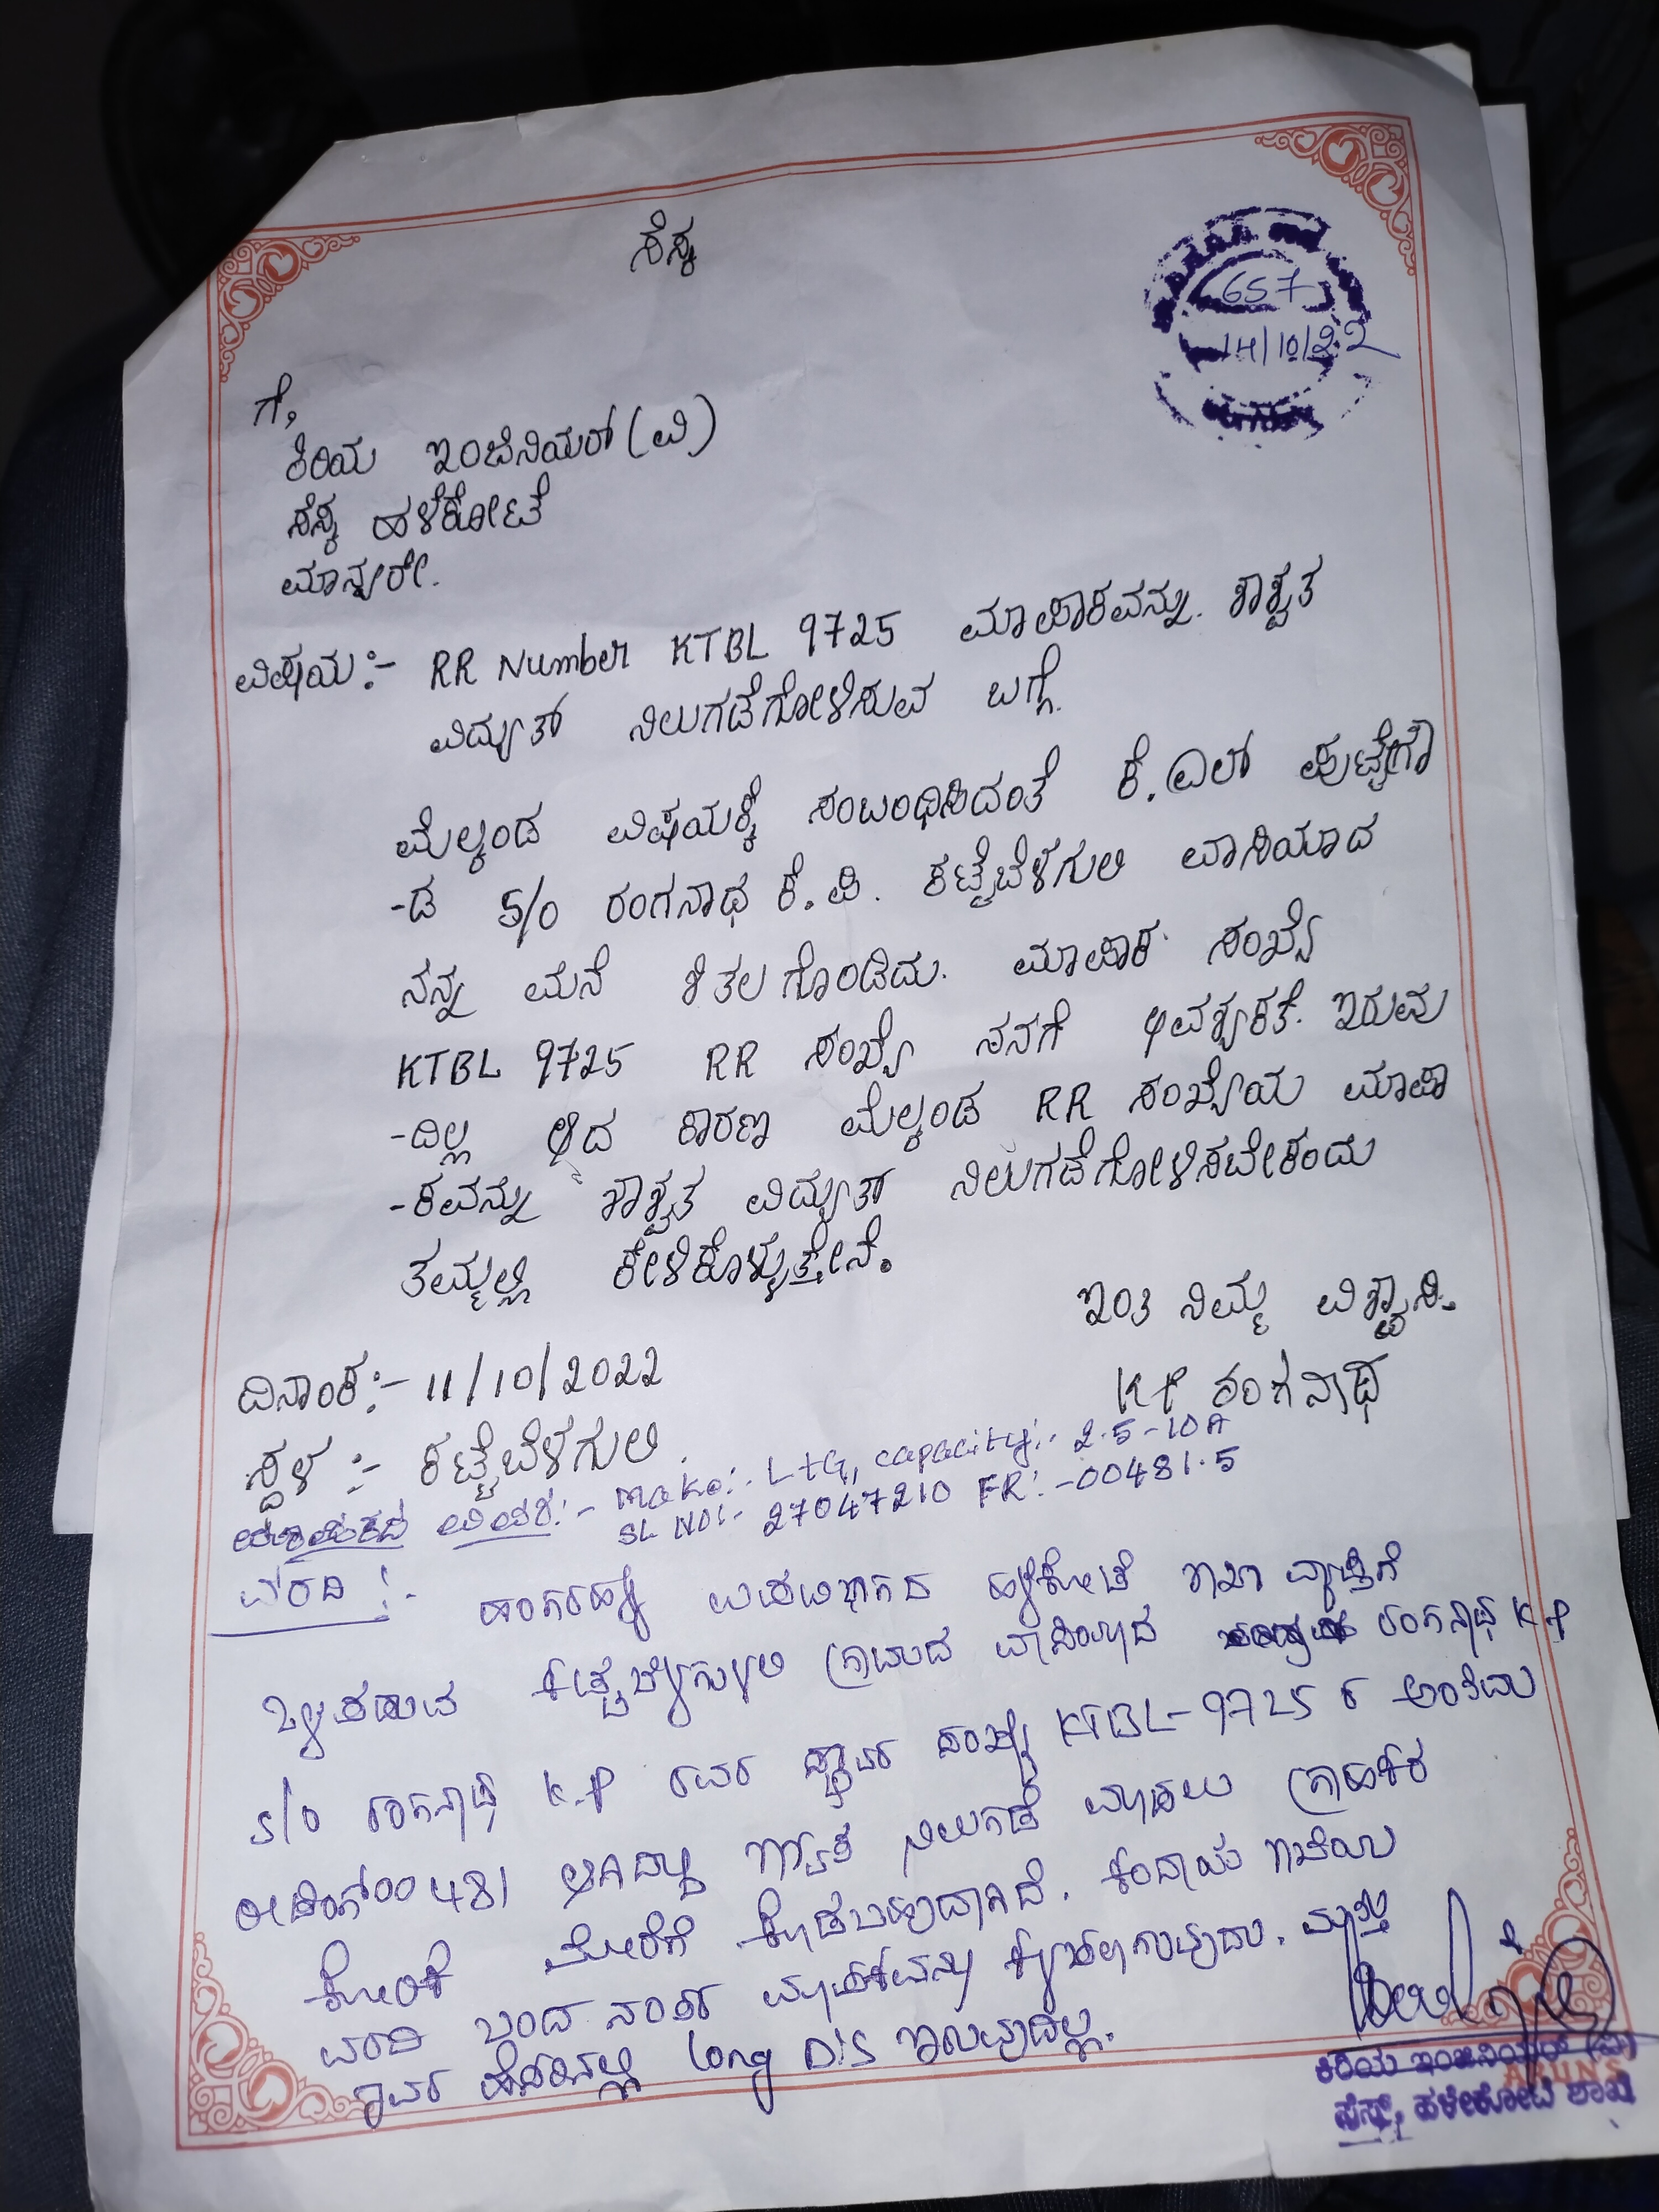 ಸೆಸ್ಕ
657
14/10/22
ಗೆ,
ಕಿರಿಯ ಇಂಜಿನಿಯರ್ (ವಿ)
ಸೆಸ್ಕ ಹಳೆಕೋಟೆ
ಮಾನ್ಯರೇ.
ವಿಷಯ:- RR Number KTBL 9725 ಮಾಪಾಕವನ್ನು. ಶಾಶ್ವತ
ವಿದ್ಯುತ್ ನಿಲುಗಡೆಗೋಳಿಸುವ ಬಗ್ಗೆ.
ಮೆಲ್ಕಂಡ ವಿಷಯಕ್ಕೆ ಸಂಬಂಧಿಸಿದಂತೆ ಕೆ.ಎಲ್ ಪುಟ್ಟೆಗೌ
-ಡ S/O ರಂಗನಾಥ ಕೆ.ಪಿ. ಕಟ್ಟೆಬೆಳಗುಲಿ ವಾಸಿಯಾದ
ನನ್ನ ಮನೆ ಶಿತಲಗೊಂಡಿದು. ಮಾಪಾಕ ಸಂಖ್ಯೆ
KTBL 9725 RR ಸಂಖ್ಯೆ ನನಗೆ ಅವಶ್ಯಕತೆ. ಇರುವು
-ದಿಲ್ಲ ಆದ ಕಾರಣ ಮೆಲ್ಕಂಡ RR ಸಂಖ್ಯೆಯ ಮಾಪಾ
-ಕವನ್ನು ಶಾಶ್ವತ ವಿದ್ಯುತ್ ನಿಲುಗಡೆಗೋಳಿಸಬೇಕಂದು
ತಮ್ಮಲ್ಲಿ ಕೇಳಿಕೊಳ್ಳುತ್ತೇನೆ.
ಇಂತಿ ನಿಮ್ಮ ವಿಶ್ವಾಸಿ.
ದಿನಾಂಕ:- 11/10/2022
K P ರಂಗನಾಥ
ಸ್ಥಳ :- ಕಟ್ಟೆಬೆಳಗುಲಿ.
ಮಾಪಕದ ವಿವರ:- Make:- L+G, capacity:- 2.5-10A
SL NO:- 27047210 FR:-00481.5
ವರದಿ :- ಹಳೇಕೋಟೆ ಶಾಖಾ ವ್ಯಾಪ್ತಿಗೆ
ಒಳಪಡುವ ಕಟ್ಟೆಬೆಳಗುಲಿ ಗ್ರಾಮದ ವಾಸಿಯಾದ ರಂಗನಾಥ K.P
S/O ರಂಗನಾಥ K.P ರವರ ಸ್ಥಾವರ ಸಂಖ್ಯೆ KTBL-9725 ರ ಅಂತಿಮ
ರೀಡಿಂಗ್ 00481 ಆಗಿದ್ದು ಶಾಶ್ವತ ನಿಲುಗಡೆ ಮಾಡಲು ಗ್ರಾಹಕರ
ಕೋರಿಕೆ ಮೇರೆಗೆ ಕೋಡಬಹುದಾಗಿದೆ. ಕಂದಾಯ ಶಾಖೆಯ
ವರದಿ ಬಂದ ನಂತರ ಮಾಪಕವನ್ನು
long DIS ಇರುವುದಿಲ್ಲ.
ಕಿರಿಯ ಇಂಜಿನಿಯರ್ (ವಿ)
ಸೆಸ್ಕ್, ಹಳೇಕೋಟೆ ಶಾಖೆ
ARUN'S